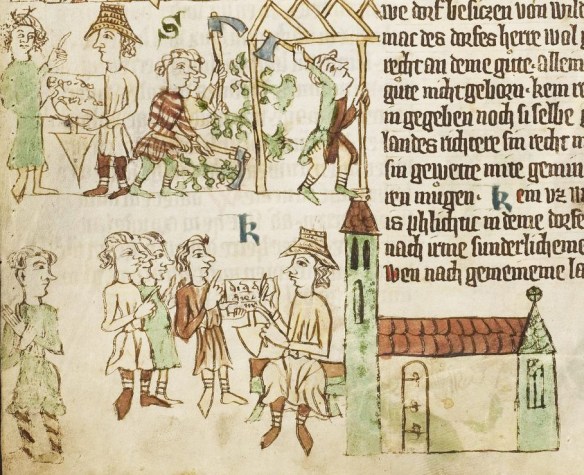 S
k
we dorf besiczen von wild
mac des dorfes herre wol
recht an deme gute. allein
gute nicht geborn. kein re
in gegeben noch si selbe
landes richtere sin recht m
sin gewette mite gemin
ren mugen. kein vz w
is phlichtic in deme dorfe
nach irme sunderlicheme
wen nach gemeineme la